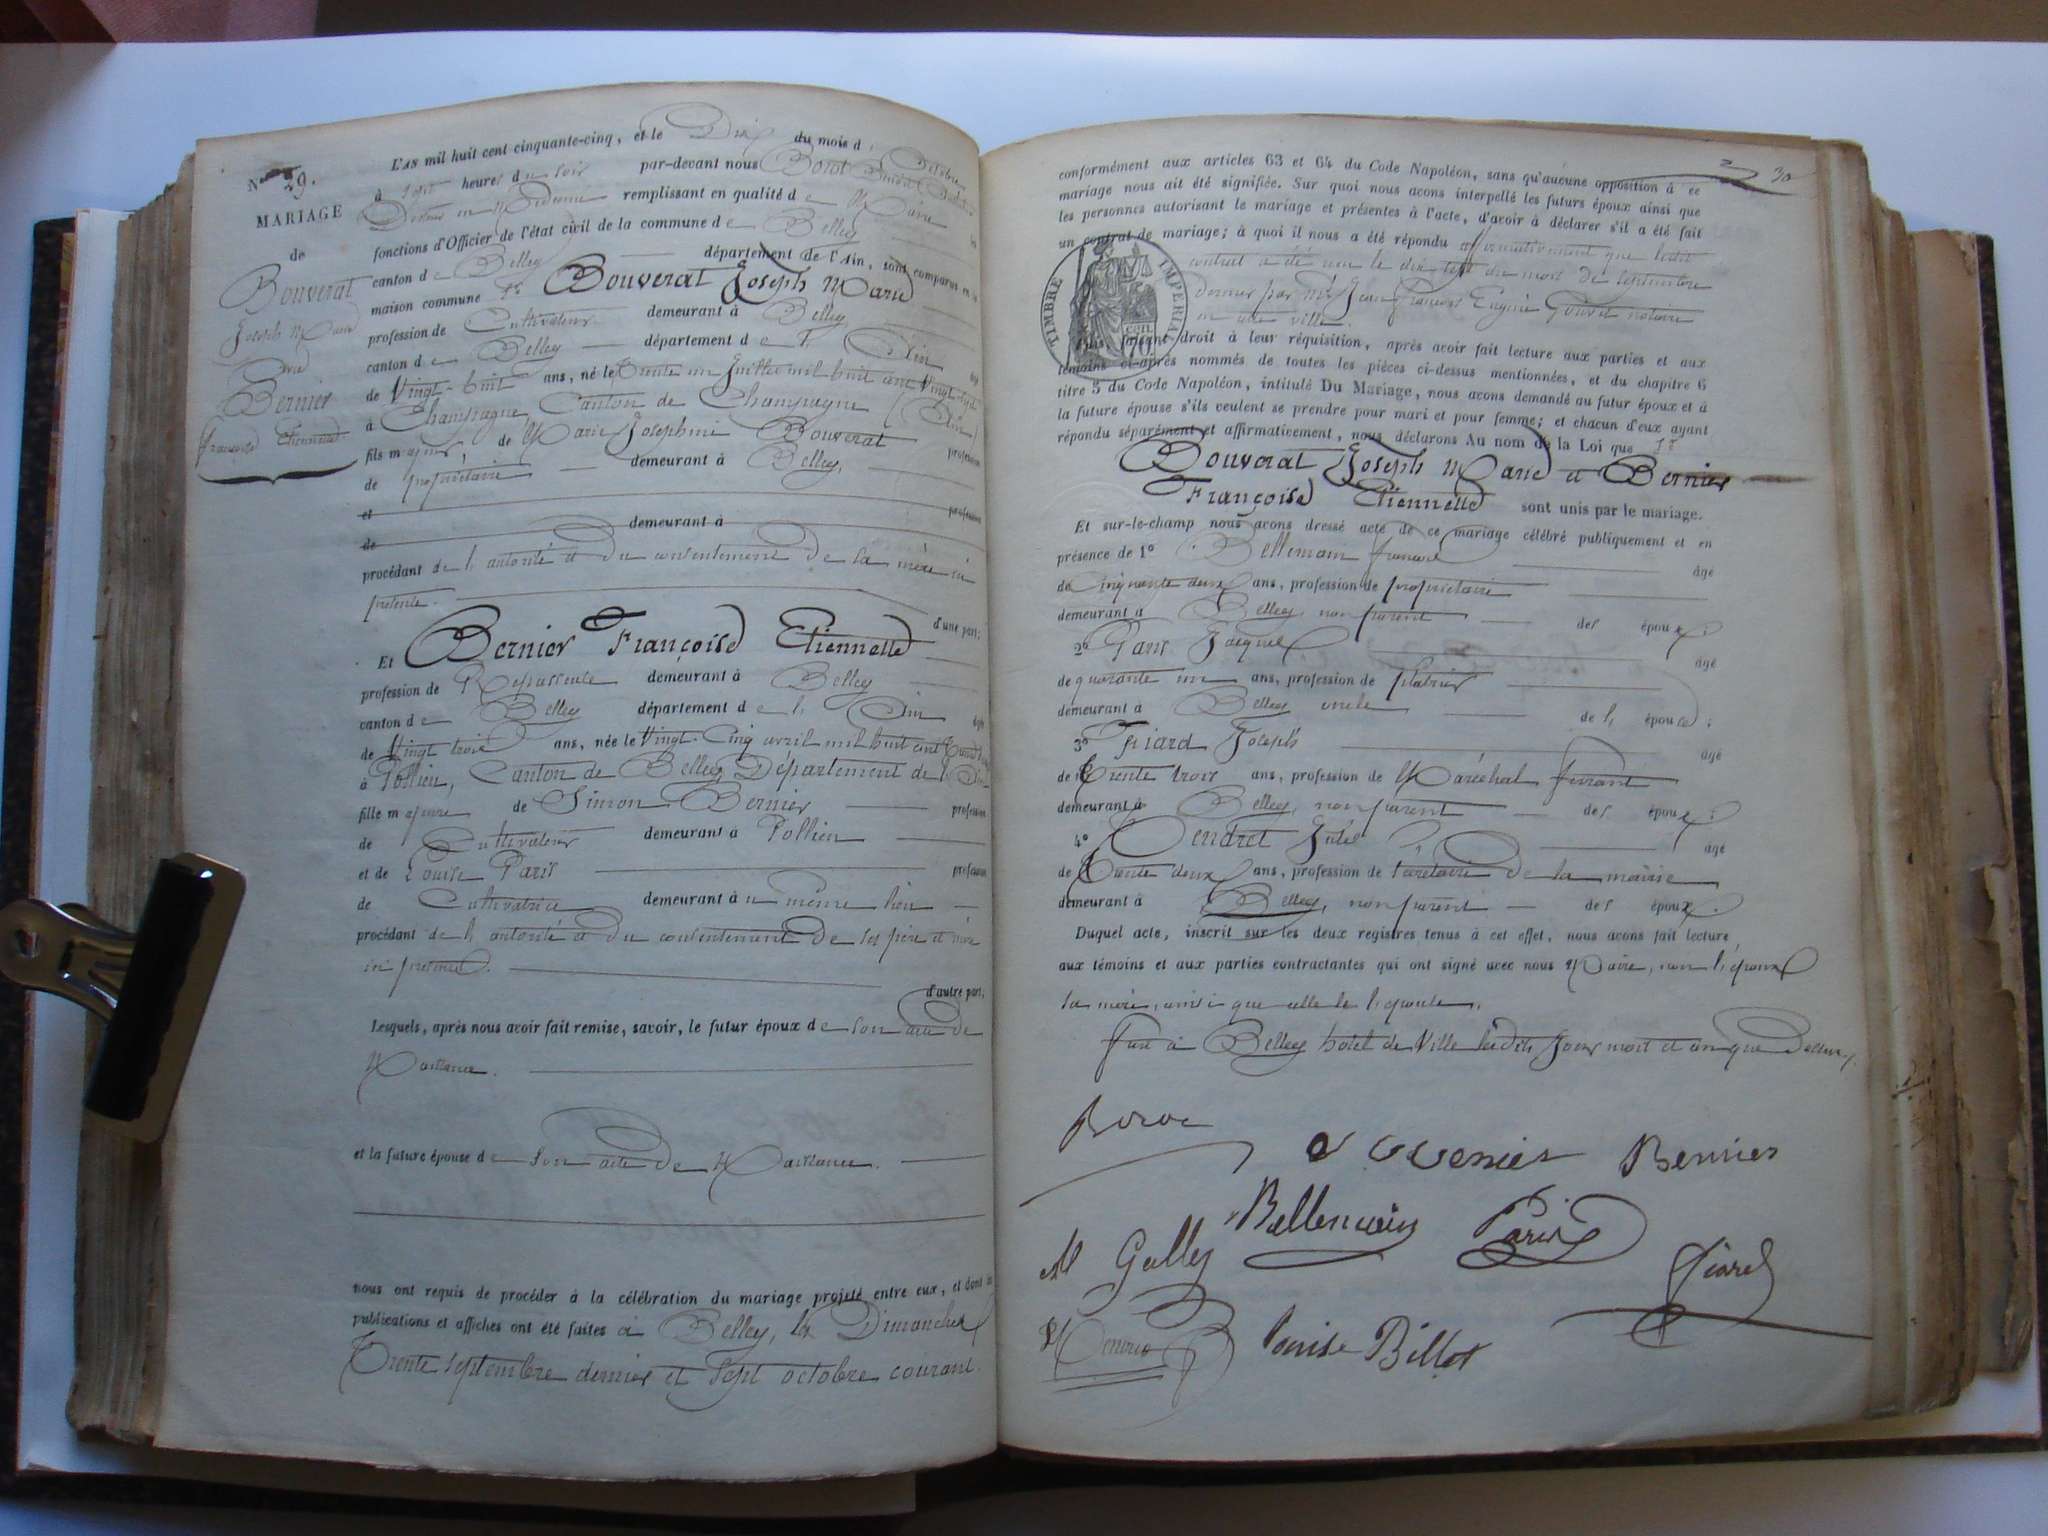 L'AN mil huit cent cinquante-cinq, et le Dix du mois d'Octobre
N° 29.
à sept heures du soir par-devant nous Borot
Docteur en Médecine remplissant en qualité de Maire les
MARIAGE
fonctions d'Officier de l'état civil de la commune de Belley
de
canton de Belley département de l'Ain, sont comparus en la
Bouverat
maison commune 1° Bouverat Joseph Marie
Joseph Marie
profession de Cultivateur demeurant à Belley
avec
canton de Belley département de l'Ain âgé
Bernier
de Vingt-huit ans, né le trente un Juillet mil huit cent Vingt sept
Françoise Etiennette
à Champagne, Canton de Champagne (Ain)
fils majeur, de Marie Josephine Bouverat profession
de propriétaire demeurant à Belley,
et profession
de demeurant à
procédant de l'autorité et du consentement de sa mère ici
présente.
d'une part;
Et Bernier Françoise Etiennette
profession de Repasseuse demeurant à Belley
canton de Belley département de l'Ain âgée
de Vingt trois ans, née le Vingt-Cinq avril mil huit cent trente deux
à Pollieu, Canton de Belley Département de l'Ain
fille majeure de Simon Bernier profession
de Cultivateur demeurant à Pollieu
et de Louise Paris profession
de Cultivatrice demeurant à u même lieu
procédant de l'autorité et du consentement de ses père et mère
ici présens.
d'autre part;
Lesquels, après nous avoir fait remise, savoir, le futur époux de son acte de
Naissance.
et la future épouse de son acte de Naissance.
nous ont requis de procéder à la célébration du mariage projeté entre eux, et dont les
publications et affiches ont été faites à Belley, les Dimanches
Trente septembre dernier et sept octobre courant.
30
conformément aux articles 63 et 64 du Code Napoléon, sans qu'aucune opposition à ce
mariage nous ait été signifiée. Sur quoi nous avons interpellé les futurs époux ainsi que
les personnes autorisant le mariage et présentes à l'acte, d'avoir à déclarer s'il a été fait
un contrat de mariage; à quoi il nous a été répondu affirmativement que ledit
contrat a été reçu le dix sept du mois de septembre
dernier par Me Jean François Eugène notaire
en cette ville.
TIMBRE IMPERIAL
70 CENT
Puis faisant droit à leur réquisition, après avoir fait lecture aux parties et aux
témoins ci-après nommés de toutes les pièces ci-dessus mentionnées, et du chapitre 6
titre 5 du Code Napoléon, intitulé Du Mariage, nous avons demandé au futur époux et à
la future épouse s'ils veulent se prendre pour mari et pour femme; et chacun d'eux ayant
répondu séparément et affirmativement, nous déclarons Au nom de la Loi que
Bouverat Joseph Marie et Bernier
Françoise Etiennette sont unis par le mariage.
Et sur-le-champ nous avons dressé acte de ce mariage célébré publiquement et en
présence de 1° Bellemain François âgé
de Cinquante deux ans, profession de propriétaire
demeurant à Belley, non parent des époux;
2° Paris Jacques âgé
de quarante un ans, profession de plâtrier
demeurant à Belley oncle de l'épouse;
3° Fiard Joseph âgé
de trente trois ans, profession de Maréchal ferrant
demeurant à Belley, non parent des époux;
4° Dendret Jules âgé
de trente deux ans, profession de secrétaire de la mairie
demeurant à Belley, non parent des époux.
Duquel acte, inscrit sur les deux registres tenus à cet effet, nous avons fait lecture
aux témoins et aux parties contractantes qui ont signé avec nous Maire, non l'époux
sa mère, ainsi que celle de l'épouse.
Fait à Belley hotel de Ville lesdits Jour mois et an que dessus.
Borot
Bernier
Bellemain Paris
Galley
Fiard
Louise Billot